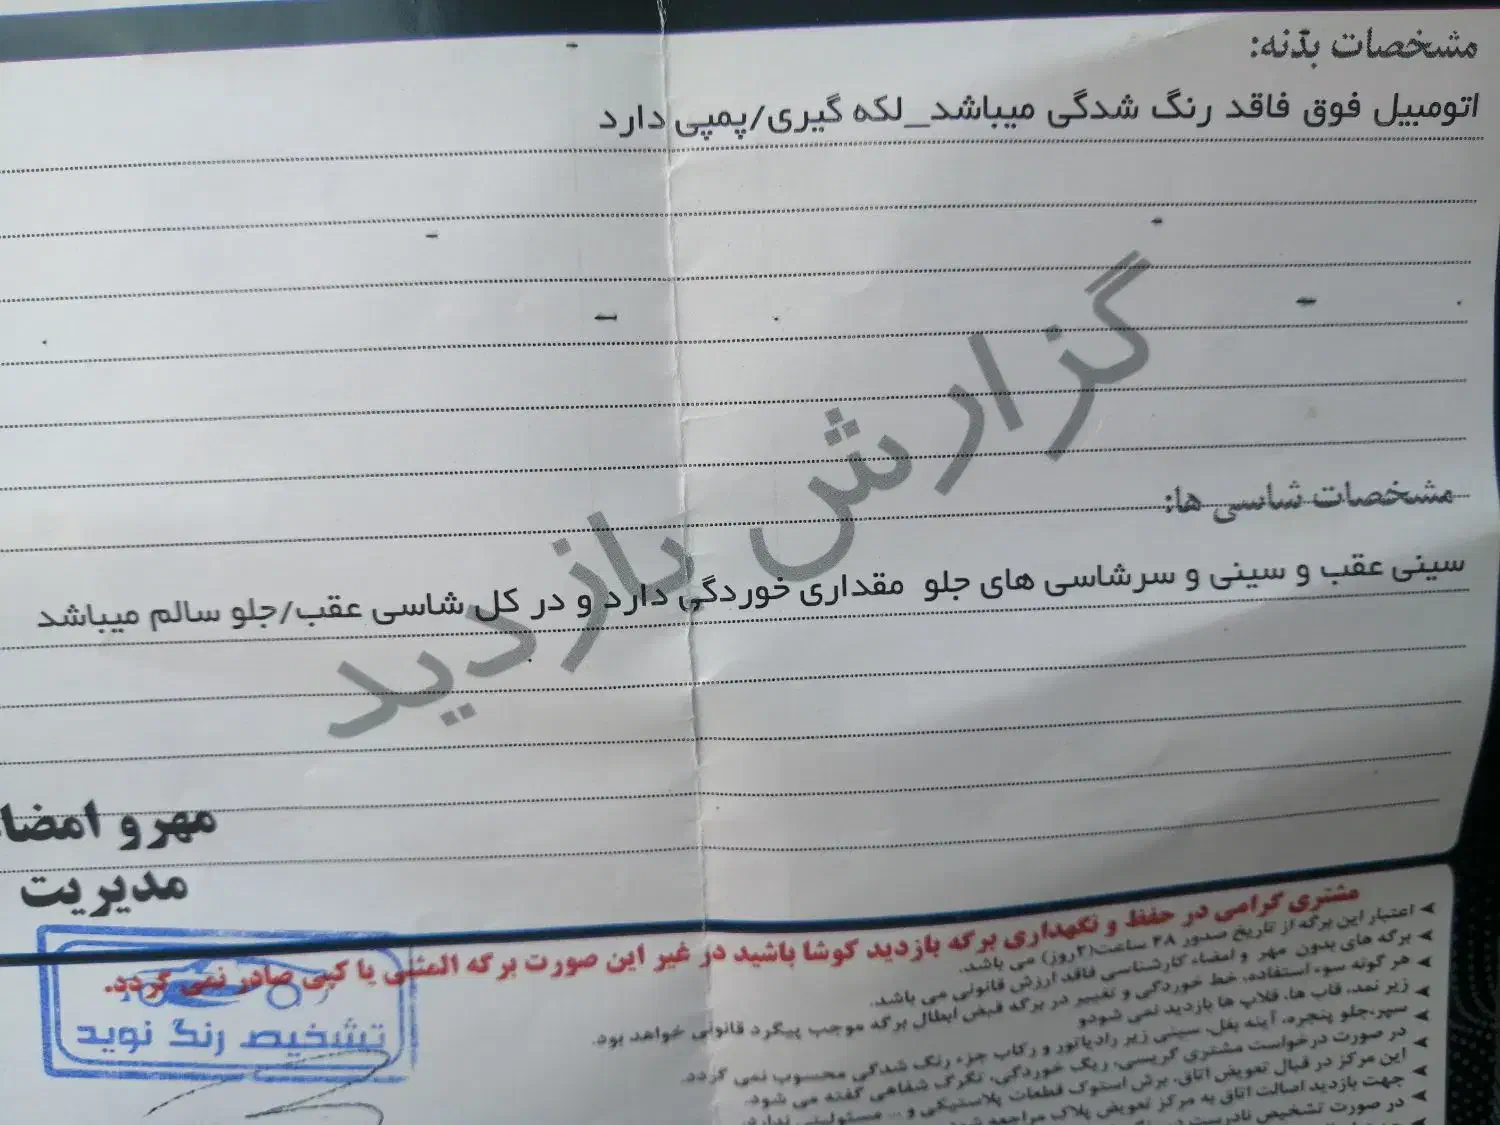 مشخصات بدنه:
اتومبیل فوق فاقد رنگ شدگی میباشد_لکه گیری/پمپی دارد
گزارش بازدید
مشخصات شاسی ها:
سینی عقب و سینی و سرشاسی های جلو مقداری خوردگی دارد و در کل شاسی عقب/جلو سالم میباشد
مهر و امضاء
مدیریت
مشتری گرامی در حفظ و نگهداری برگه بازدید کوشا باشید در غیر این صورت برگه المثنی یا کپی صادر نمی گردد.
اعتبار این برگه از تاریخ صدور ۴۸ ساعت(۲روز) می باشد.
برگه های بدون مهر و امضاء کارشناسی فاقد ارزش قانونی می باشد.
هر گونه سوء استفاده، خط خوردگی و تغییر در برگه قبض ابطال برگه موجب پیگرد قانونی خواهد بود.
زیر نمد، قاب ها، قلاب ها بازدید نمی شودو
سپر،جلو پنجره، آینه بغل، سینی زیر رادیاتور و رکاب جزء رنگ شدگی محسوب نمی گردد.
در صورت درخواست مشتری گریسی، رینگ خوردگی، تگرگ شفاهی گفته می شود.
این مرکز در قبال تعویض اتاق، برش استوک قطعات پلاستیکی و ... مسئولیتی ندارد.
جهت بازدید اصالت اتاق به مرکز تعویض پلاک مراجعه
در صورت تشخیص نادرست
تشخیص رنگ نوید